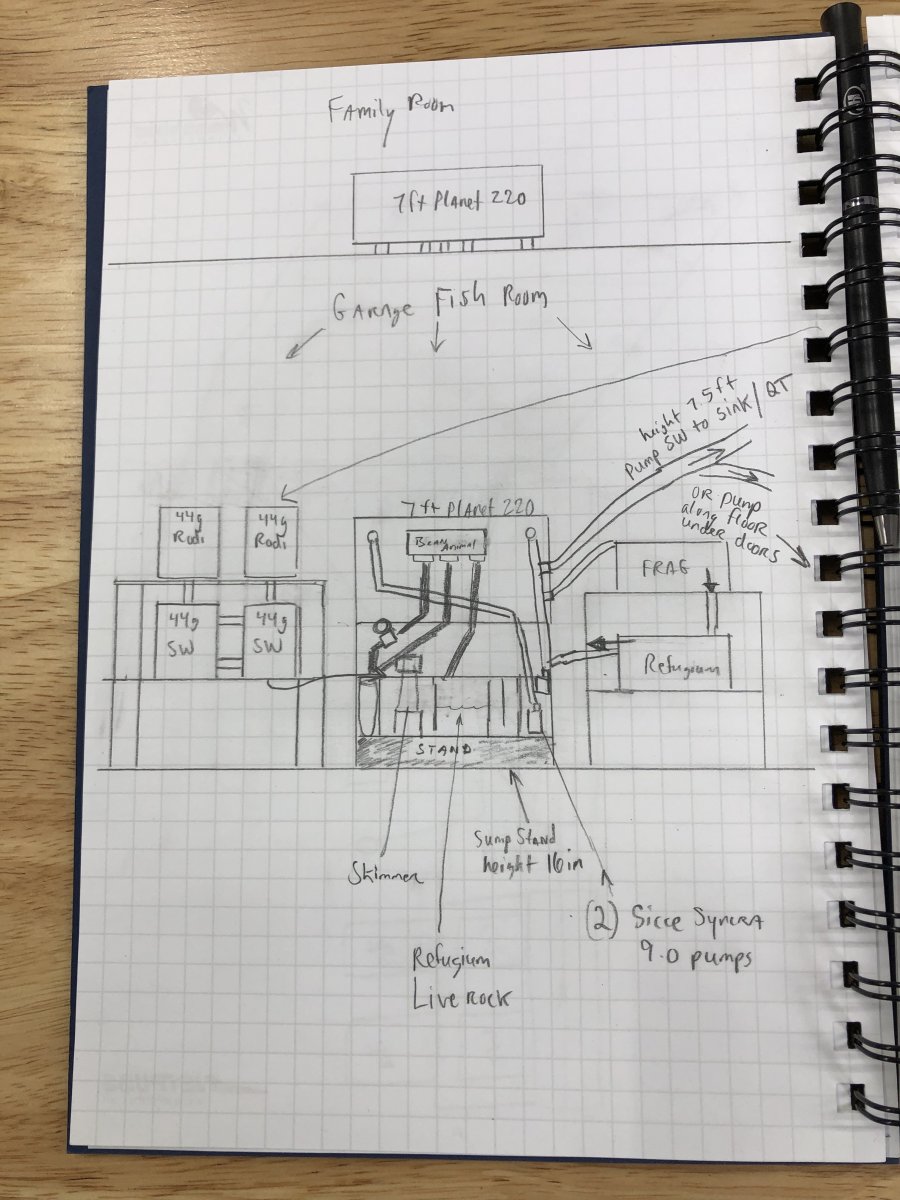 Family Room
7ft Planet 220
Garage Fish Room
height 7.5ft
Pump SW to Sink/QT
OR pump
along floor
under doors
7ft Planet 220
44g
Rodi
44g
Rodi
BeanAnimal
FRAG
44g
SW
44g
SW
Refugium
STAND
Sump Stand
height 16in
Skimmer
(2) Sicce Syncra
9.0 pumps
Refugium
Live Rock